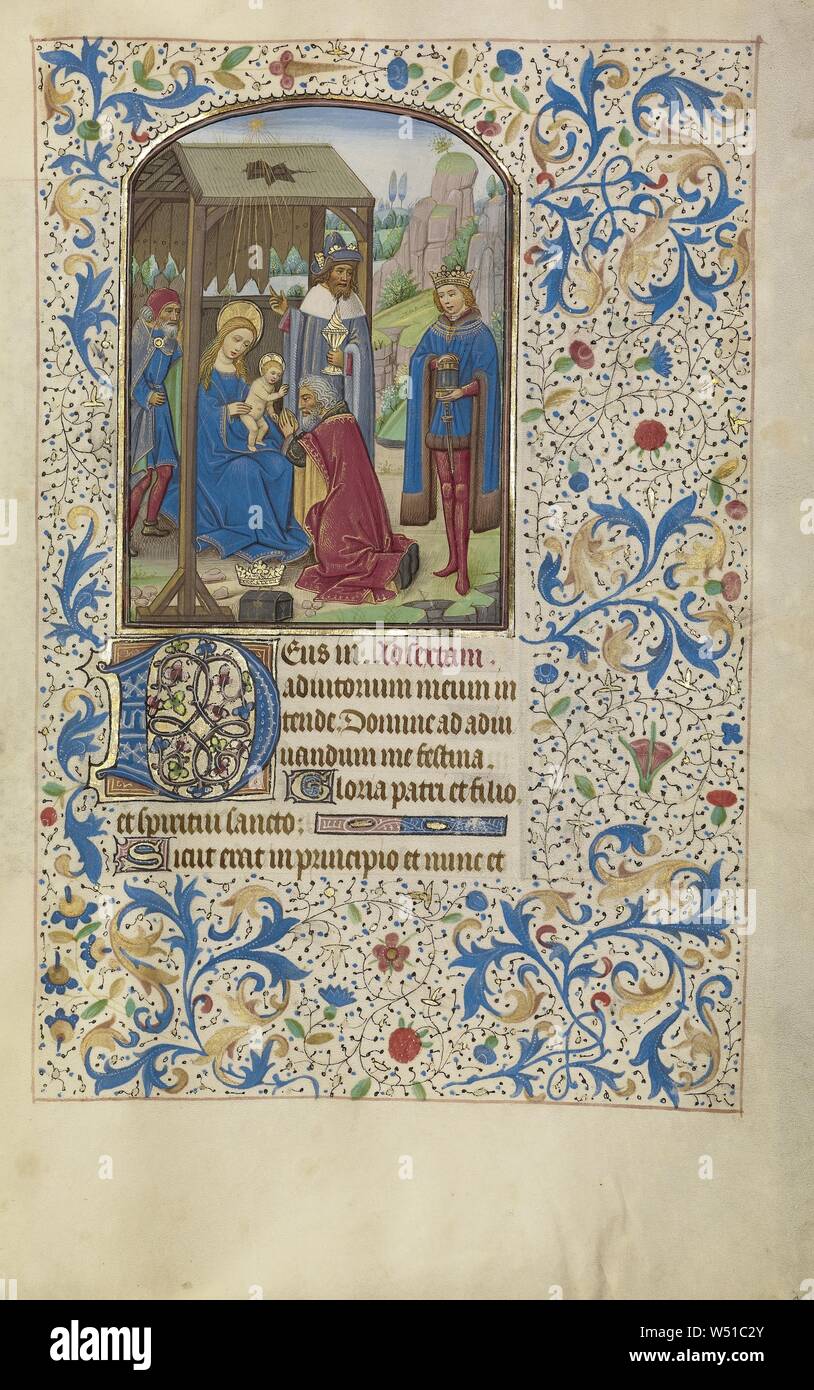 Deus in. Ad sextam.
adiutorium meum in
tende. Domine ad adiu
uandum me festina.
Gloria patri et filio.
et spiritui sancto:
Sicut erat in principio et nunc et
alamy
Image ID: W51C2Y
www.alamy.com